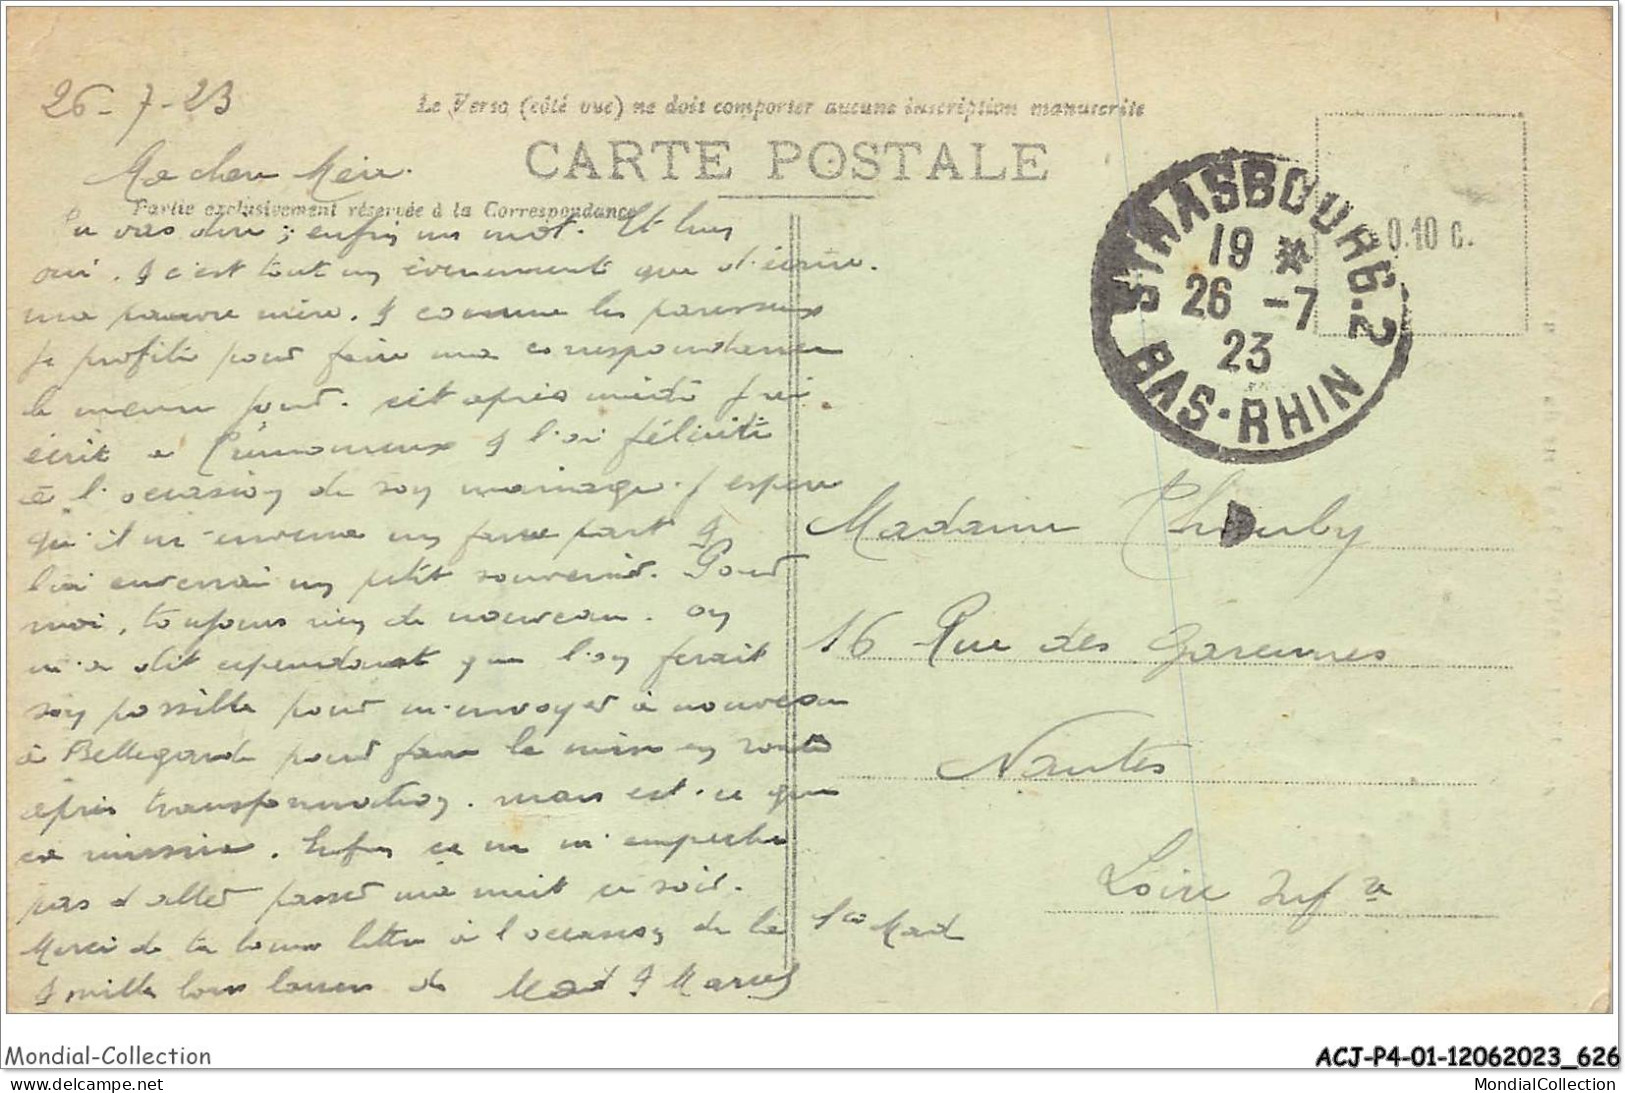 26-7-23
Le Verso (côté vue) ne doit comporter aucune inscription manuscrite
CARTE POSTALE
Ma chère Mère.
Partie exclusivement réservée à la Correspondance
Tu vas dire ; enfin un mot. Et bien
oui. & c'est tout un évènement que d'écrire.
ma pauvre mère. & comme les paresseux
je profite pour faire ma correspondance
le même jour. cet après midi j'ai
écrit à l'amoureux & l'ai félicité
à l'occasion de son mariage. J'espère
qu'il m'enverra un faire part &
lui enverrai un petit souvenir. Pour
moi, toujours rien de nouveau. on
m'a dit cependant que l'on ferait
son possible pour m'envoyer à nouveau
à Bellegarde pour faire la mise en route
après transformation. mais est-ce que
ce
Enfin ça ne m'empêche
pas d'aller passer ma nuit ce soir.
Merci de ta bonne lettre à l'occasion de la Ste Mad
& mille bons baisers de Mad & Marcel
STRASBOURG.2
19 *
26 -7
23
BAS-RHIN
0.10 c.
Madame
16 Rue des Garennes
Nantes
Loire Infre
Mondial-Collection
ACJ-P4-01-12062023_626
delcampe.net
MondialCollection